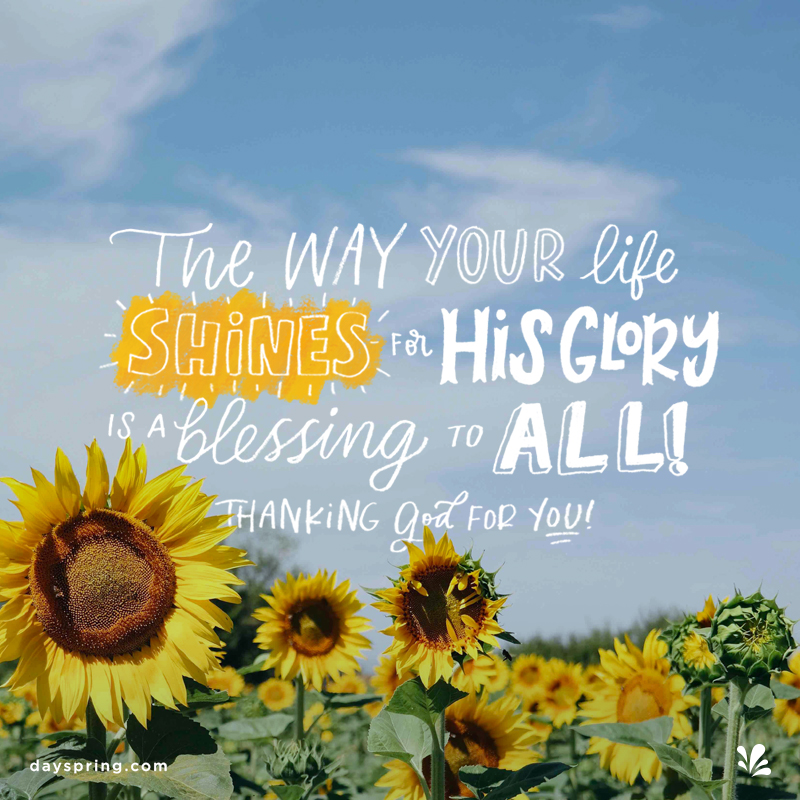 The WAY YOUR life
SHiNES FOR HiS GLORY
IS A blessing TO ALL!
THANKiNG God FOR YOU!
dayspring.com